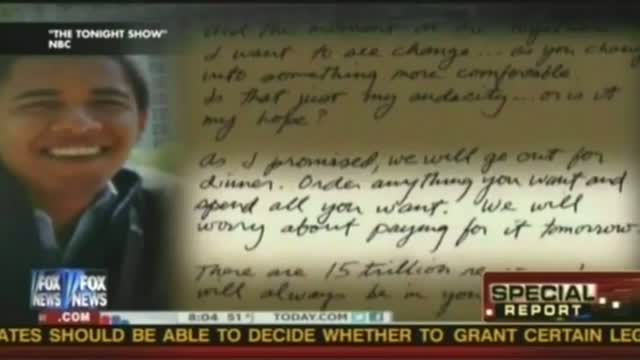 "THE TONIGHT SHOW"
NBC
I want to see change... as you change
into something more comfortable.
Is that just my audacity... or is it
my hope?
As I promised, we will go out for
dinner. Order anything you want and
spend all you want. We will
worry about paying for it tomorrow.
There are 15 trillion
will always be in
FOX NEWS
.COM
FOX NEWS
8:04 51°
TODAY.COM
SPECIAL
REPORT
ATES SHOULD BE ABLE TO DECIDE WHETHER TO GRANT CERTAIN LEG